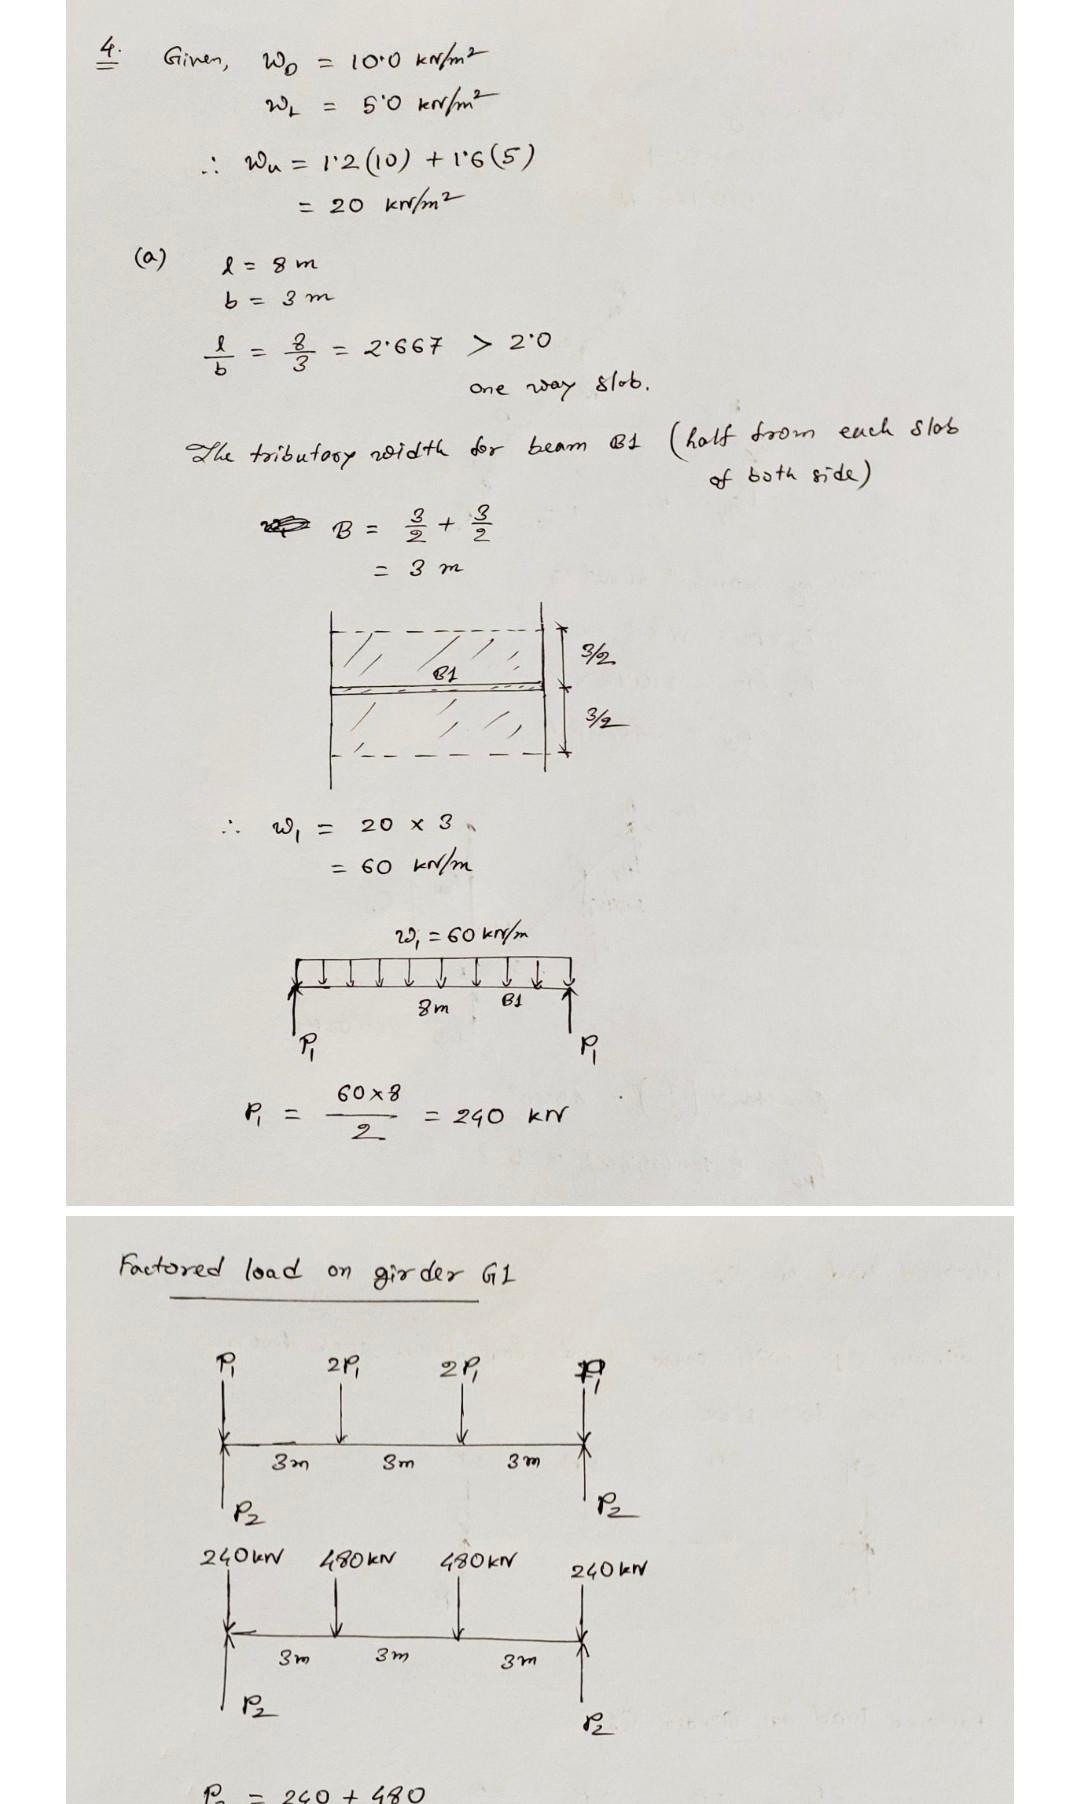 4. Given, W_D = 10.0 kN/m²
W_L = 5.0 kN/m²
∴ W_u = 1.2(10) + 1.6(5)
= 20 kN/m²
(a) l = 8 m
b = 3 m
l/b = 8/3 = 2.667 > 2.0
one way slab.
The tributary width for beam B1 (half from each slab
of both side)
B = 3/2 + 3/2
= 3 m
3/2
B1
3/2
∴ w₁ = 20 × 3
= 60 kN/m
w₁ = 60 kN/m
8m B1
P₁ P₁
P₁ = 60×8/2 = 240 kN
Factored load on girder G1
P₁ 2P₁ 2P₁ P₁
3m 3m 3m
P₂ P₂
240kN 480kN 480kN 240kN
3m 3m 3m
P₂ P₂
P₂ = 240 + 480